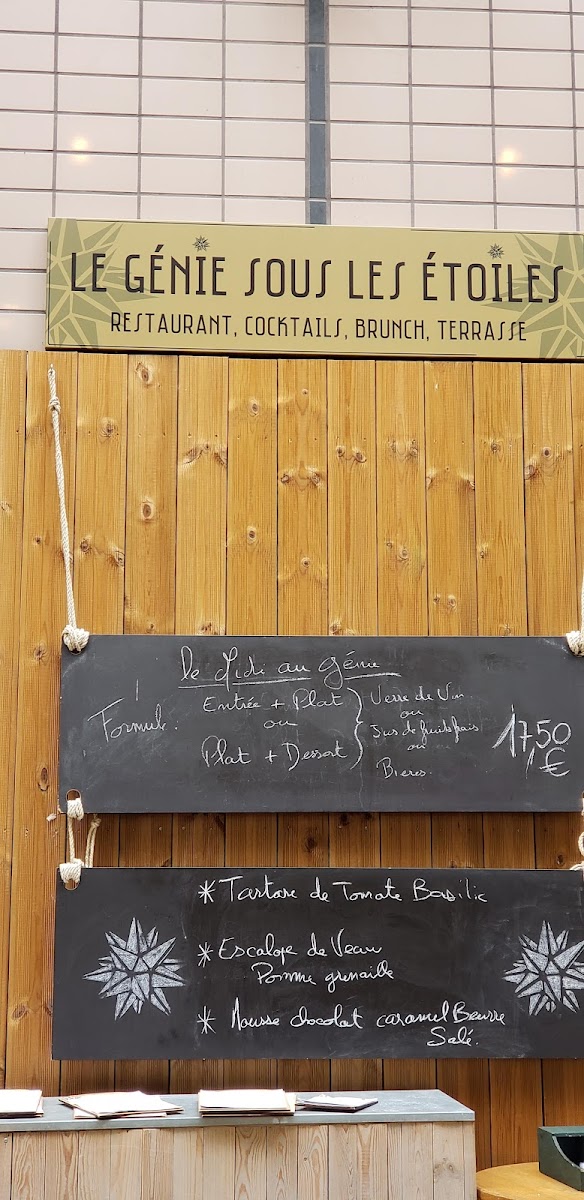 LE GÉNIE SOUS LES ÉTOILES
RESTAURANT, COCKTAILS, BRUNCH, TERRASSE
Le Midi au Génie
Formule:
Entrée + Plat
ou
Plat + Dessert
Verre de Vin
ou
Jus de fruits frais
ou
Bieres.
17,50
€
* Tartare de Tomate Basilic
* Escalope de Veau
Pomme grenaille
* Mousse chocolat caramel Beurre
Salé.